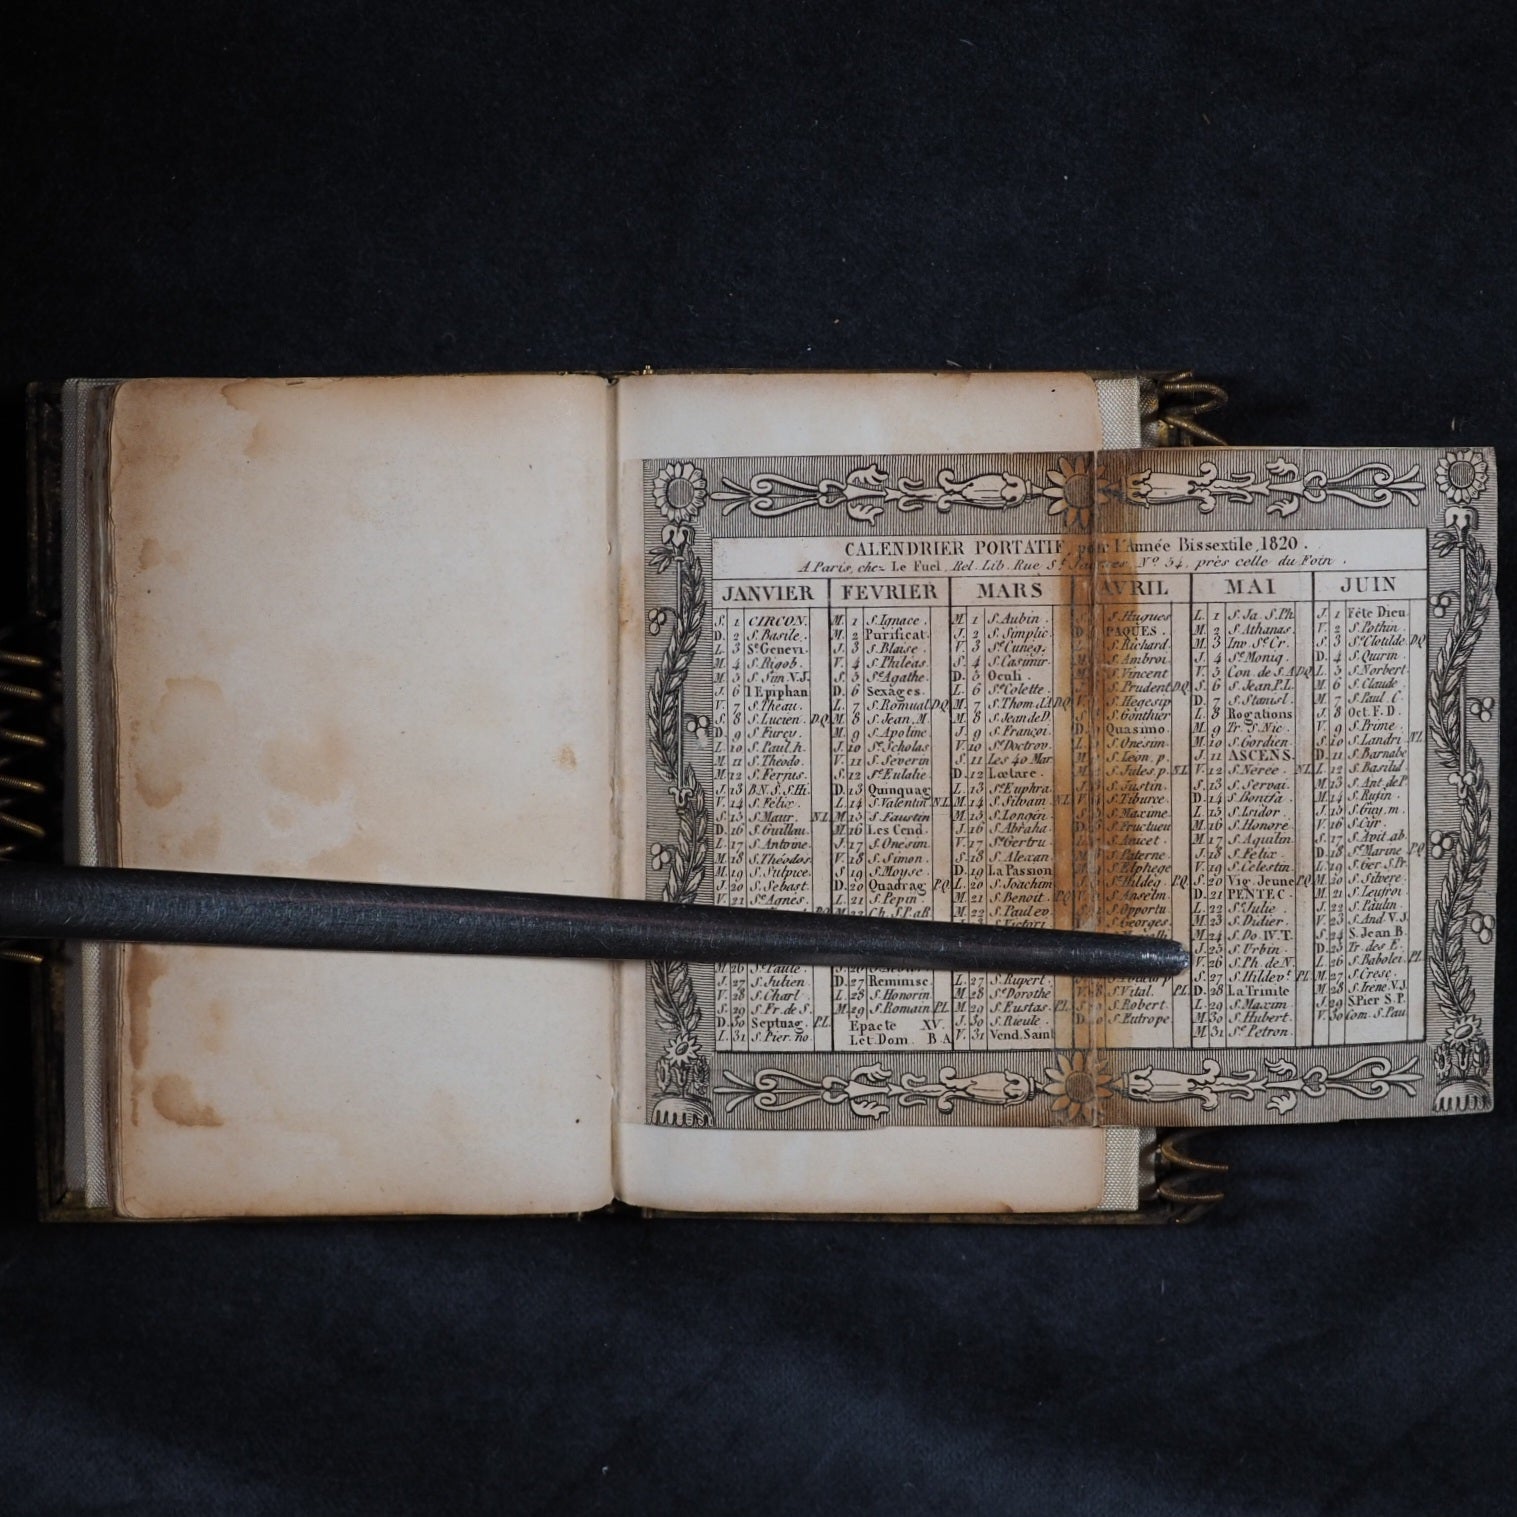 CALENDRIER PORTATIF, pour l'Année Bissextile, 1820.
A Paris, chez Le Fuel, Rel. Lib. Rue St. Jacques, No. 54, près celle du Foin.
JANVIER
S. 1 CIRCON.
D. 2 S. Basile.
L. 3 Se Genevi.
M. 4 S. Rigob.
M. 5 S. Sim V.J.
J. 6 l'Epiphan
V. 7 S. Théau.
S. 8 S. Lucien. D.Q.
D. 9 S. Furcy.
L. 10 S. Paul. h.
M. 11 S. Théodo.
M. 12 S. Ferjus.
J. 13 B.N.S.
V. 14 S. Felix.
S. 15 S. Maur. N.L.
D. 16 S. Guillau.
L. 17 S. Antoine.
M. 18 S. Théodos.
M. 19 S. Sulpice.
J. 20 S. Sebast.
V. 21 Se Agnes.
M. 26 Se Paule.
J. 27 S. Julien.
V. 28 S. Charl.
S. 29 S. Fr. de S.
D. 30 Septuag. P.L.
L. 31 S. Pier. no
FEVRIER
M. 1 S. Ignace.
M. 2 Purificat.
J. 3 S. Blaise.
V. 4 S. Philéas.
S. 5 Se Agathe.
D. 6 Sexages.
L. 7 S. Romual D.Q.
M. 8 S. Jean. M.
M. 9 S. Apoline
J. 10 Se Scholas
V. 11 S. Severin
S. 12 Se Eulalie.
D. 13 Quinquag
L. 14 S. Valentin N.L.
M. 15 S. Faustin
M. 16 Les Cend.
J. 17 S. Onesim.
V. 18 S. Simon.
S. 19 S. Moyse.
D. 20 Quadrag. P.Q.
L. 21 S. Pepin.
M. 22 Ch. S.P. aR
D. 27 Reminisc.
L. 28 S. Honorin
M. 29 S. Romain P.L.
Epacte XV.
Let. Dom. B A
MARS
M. 1 S. Aubin.
J. 2 S. Simplic.
V. 3 Se Cuneg.
S. 4 S. Casimir.
D. 5 Oculi.
L. 6 Se Colette.
M. 7 S. Thom. d'A D.Q.
M. 8 S. Jean de D.
J. 9 S. Françoi.
V. 10 Se Doctrov.
S. 11 Les 40 Mar.
D. 12 Lœtare.
L. 13 Se Euphra.
M. 14 S. Silvain. N.L.
M. 15 S. Longin.
J. 16 S. Abraha.
V. 17 Se Gertru.
S. 18 S. Alexan.
D. 19 La Passion
L. 20 S. Joachim
M. 21 S. Benoit. P.Q.
M. 22 S. Paul ev.
J. 23 S. Victori.
L. 27 S. Rupert.
M. 28 Se Dorothe
M. 29 S. Eustas. P.L.
J. 30 S. Rieule.
V. 31 Vend. Saint
AVRIL
S. Hugues
PAQUES.
S. Richard.
S. Ambroi.
S. Vincent
S. Prudent D.Q.
S. Hegesip
S. Gonthier
Quasimo.
S. Onesim.
S. Léon. p.
S. Jules. p. N.L.
S. Justin.
S. Tiburce.
S. Maxime.
S. Fructueu
S. Anicet.
S. Paterne.
S. Elphege
Se Hildeg. P.Q.
S. Anselm.
S. Opportu
S. Georges.
S. Vital. P.L.
S. Robert.
S. Eutrope.
MAI
L. 1 S. Ja. S. Ph.
M. 2 S. Athanas.
M. 3 Inv. Se Cr.
J. 4 Se Moniq.
V. 5 Con. de S.A D.Q.
S. 6 S. Jean P.L.
D. 7 S. Stanisl.
L. 8 Rogations
M. 9 Tr. S. Nic.
M. 10 S. Gordien.
J. 11 ASCENS.
V. 12 S. Nerée. N.L.
S. 13 S. Servai.
D. 14 S. Bonifa.
L. 15 S. Isidor.
M. 16 S. Honoré.
M. 17 S. Aquilin.
J. 18 S. Felix.
V. 19 S. Celestin.
S. 20 Vig. Jeune P.Q.
D. 21 PENTEC.
L. 22 Se Julie.
M. 23 S. Didier.
M. 24 S. Do. IV.T.
J. 25 S. Urbin.
V. 26 S. Ph. de N.
S. 27 S. Hildevt. P.L.
D. 28 La Trinité
L. 29 S. Maxim.
M. 30 S. Hubert.
M. 31 Se Petron.
JUIN
J. 1 Fête Dieu.
V. 2 S. Pothin.
S. 3 Se Clotilde. D.Q.
D. 4 S. Quirin.
L. 5 S. Norbert.
M. 6 S. Claude.
M. 7 S. Paul C.
J. 8 Oct. F.D.
V. 9 S. Prime.
S. 10 S. Landri. N.L.
D. 11 S. Barnabé
L. 12 S. Basilid.
M. 13 S. Ant. de P.
M. 14 S. Rufin.
J. 15 S. Guy. m.
V. 16 S. Cyr.
S. 17 S. Avit. ab.
D. 18 Se Marine. P.Q.
L. 19 S. Ger. S. Pr.
M. 20 S. Silvere.
M. 21 S. Leufroi.
J. 22 S. Paulin.
V. 23 S. And V.J.
S. 24 S. Jean B.
D. 25 Tr. des E.
L. 26 S. Babolei. P.L.
M. 27 S. Cresc.
M. 28 S. Irené. V.J.
J. 29 S. Pier S. P.
V. 30 Com. S. Pau.